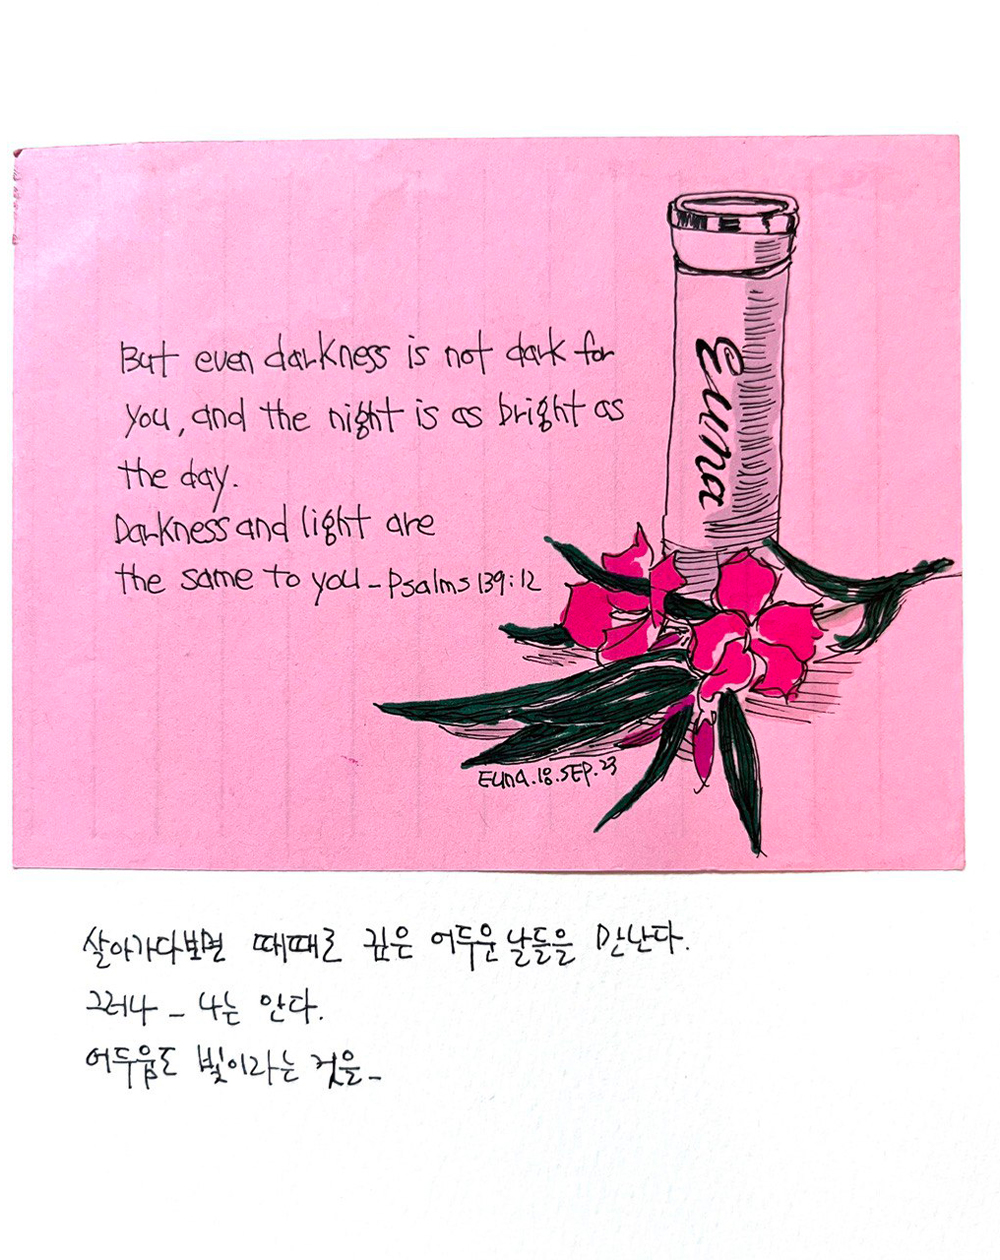 But even darkness is not dark for
you, and the night is as bright as
the day.
Darkness and light are
the same to you - Psalms 139:12
Euna
Euna.18.SEP.23
살아가다보면 때때로 깊은 어두운 날들을 만난다.
그러나 _ 나는 안다.
어두움도 빛이라는 것을_